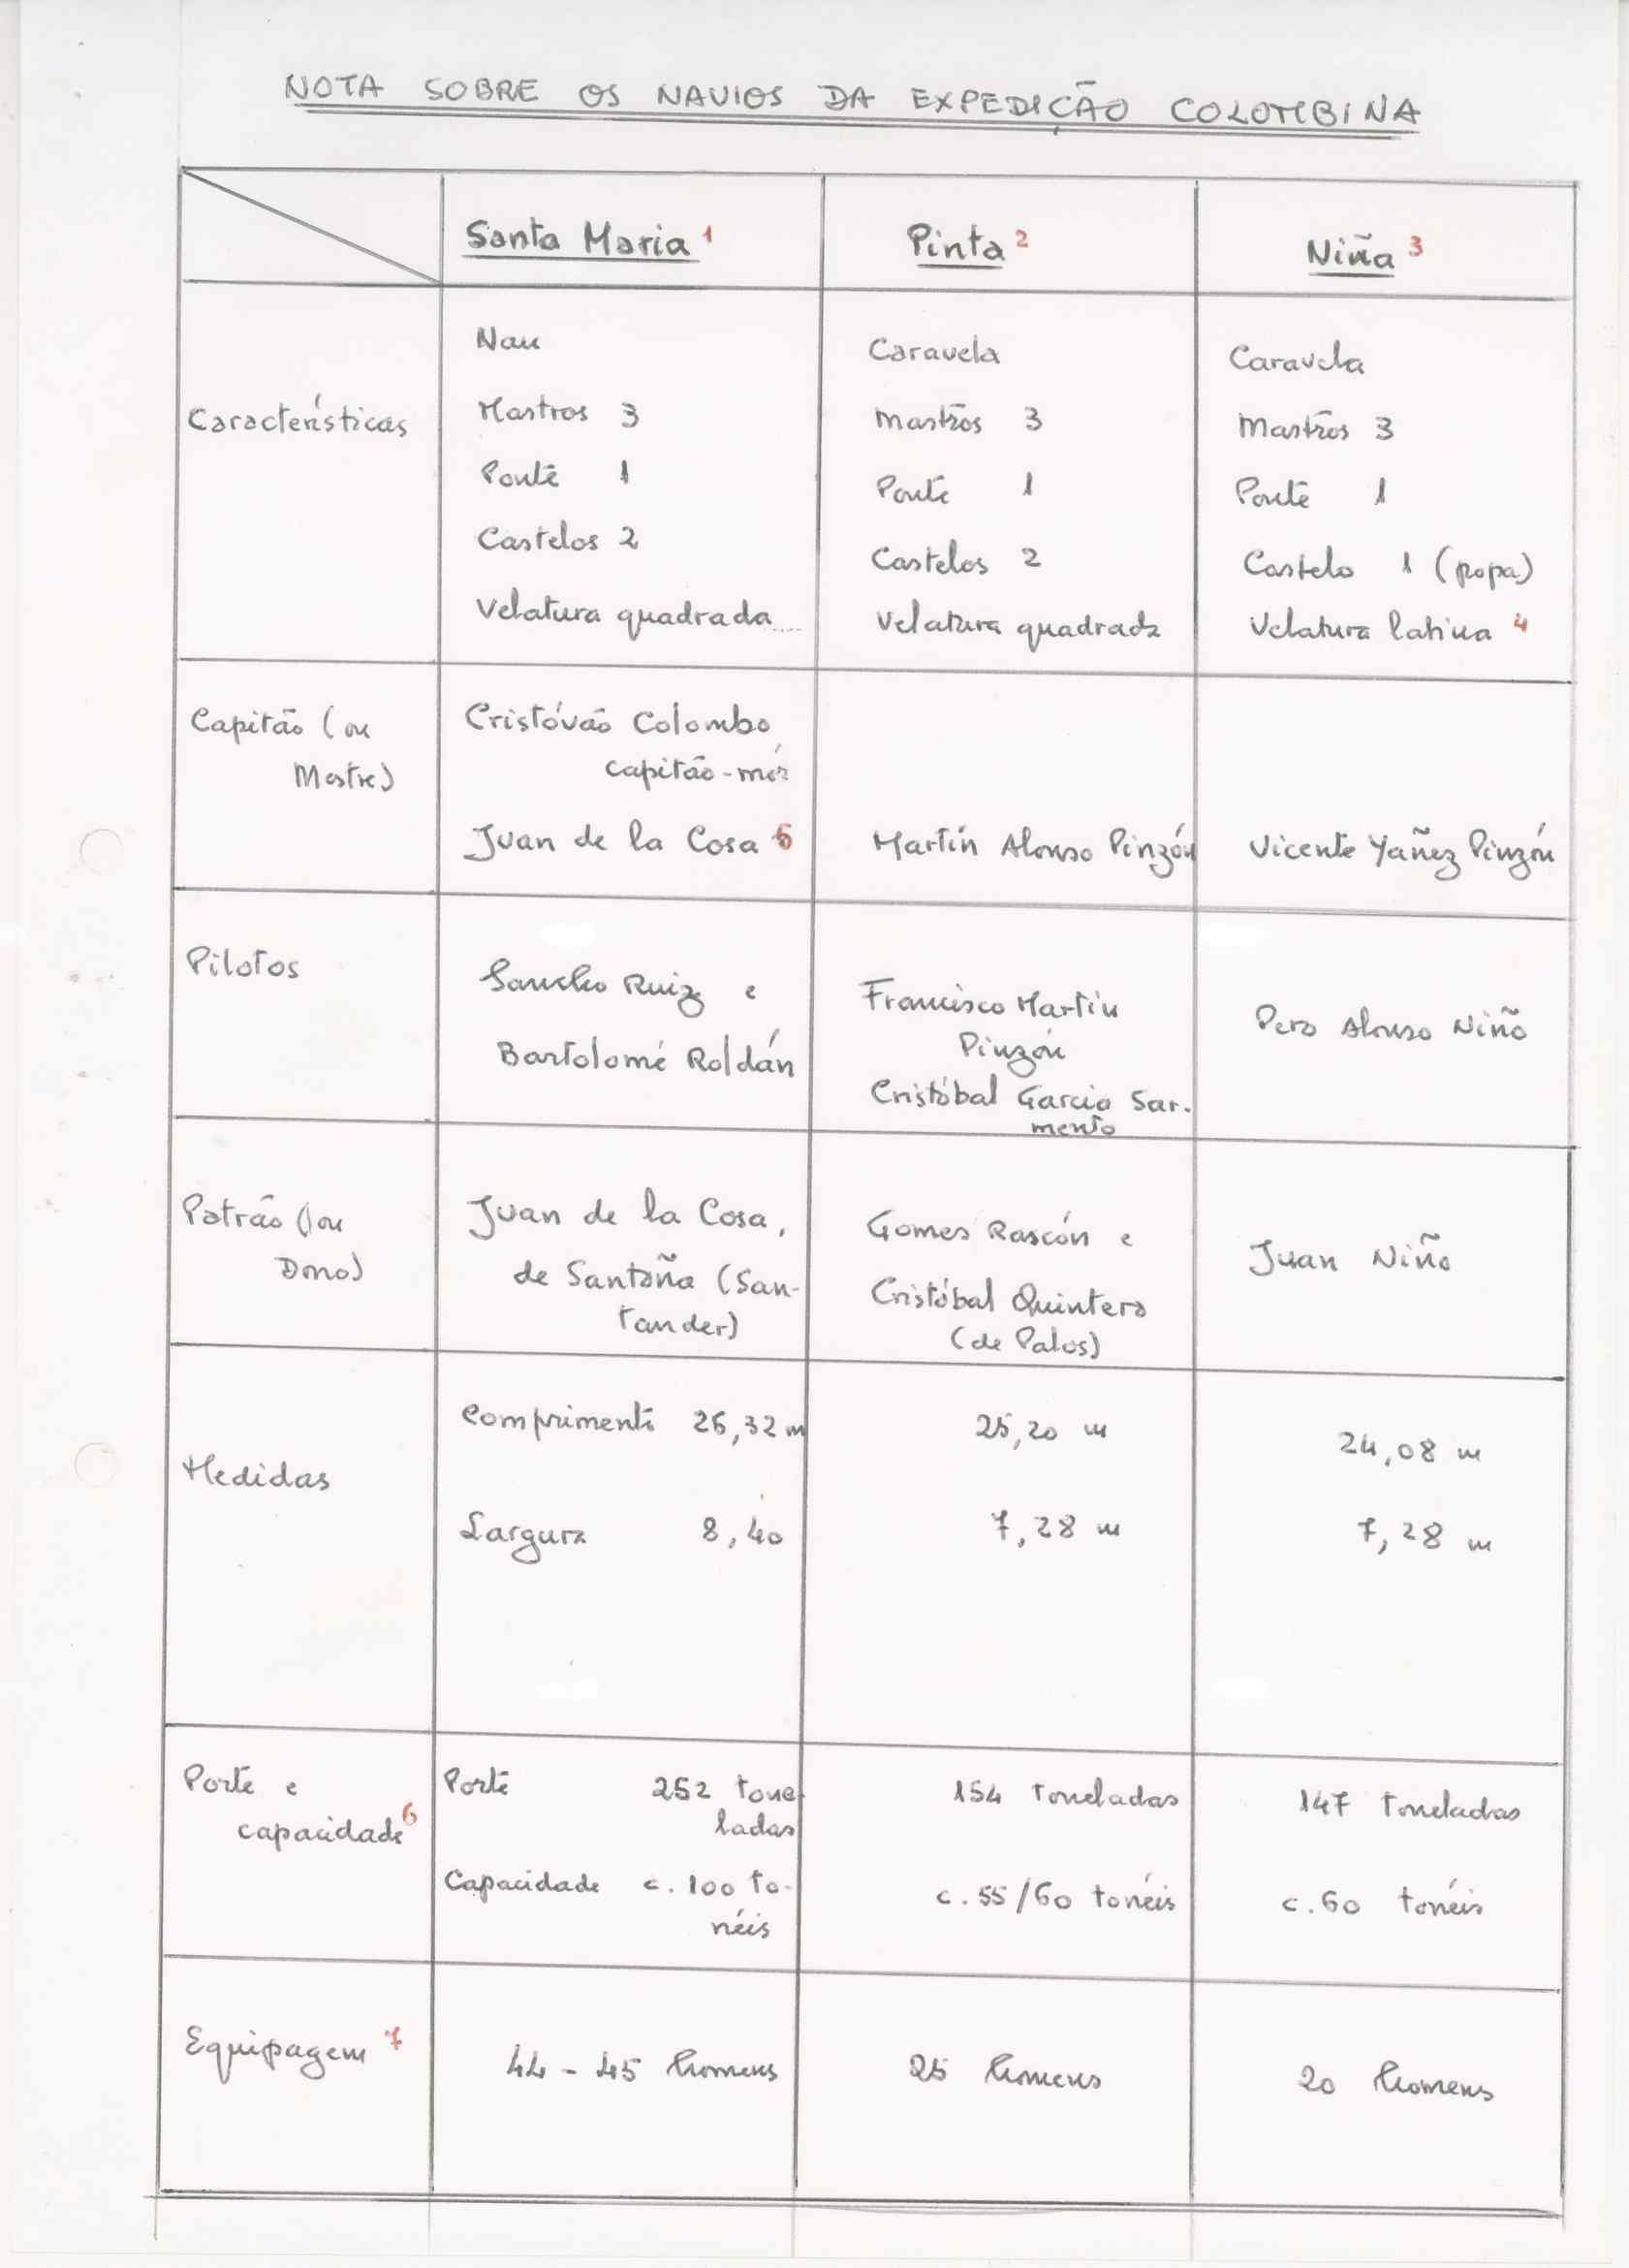 NOTA SOBRE OS NAVIOS DA EXPEDIÇÃO COLOMBINA
Santa Maria 1
Pinta 2
Niña 3
Características
Nau
Mastros 3
Ponte 1
Castelos 2
Velatura quadrada
Caravela
Mastros 3
Ponte 1
Castelos 2
Velatura quadrada
Caravela
Mastros 3
Ponte 1
Castelo 1 (popa)
Velatura latina 4
Capitão (ou
Mestre)
Cristóvão Colombo,
capitão-mór
Juan de la Cosa 5
Martín Alonso Pinzón
Vicente Yañez Pinzón
Pilotos
Sancho Ruiz e
Bartolomé Roldán
Francisco Martín
Pinzón
Cristóbal Garcia Sar-
mento
Pero Alonso Niño
Patrão (ou
Dono)
Juan de la Cosa,
de Santoña (San-
tander)
Gomes Rascón e
Cristóbal Quintero
(de Palos)
Juan Niño
Medidas
Comprimento 26,32 m
Largura 8,40
25,20 m
7,28 m
24,08 m
7,28 m
Porte e
capacidade 6
Porte 252 tone
ladas
Capacidade c. 100 to-
néis
154 toneladas
c. 55/60 tonéis
147 toneladas
c. 60 tonéis
Equipagem 7
44 - 45 homens
25 homens
20 homens